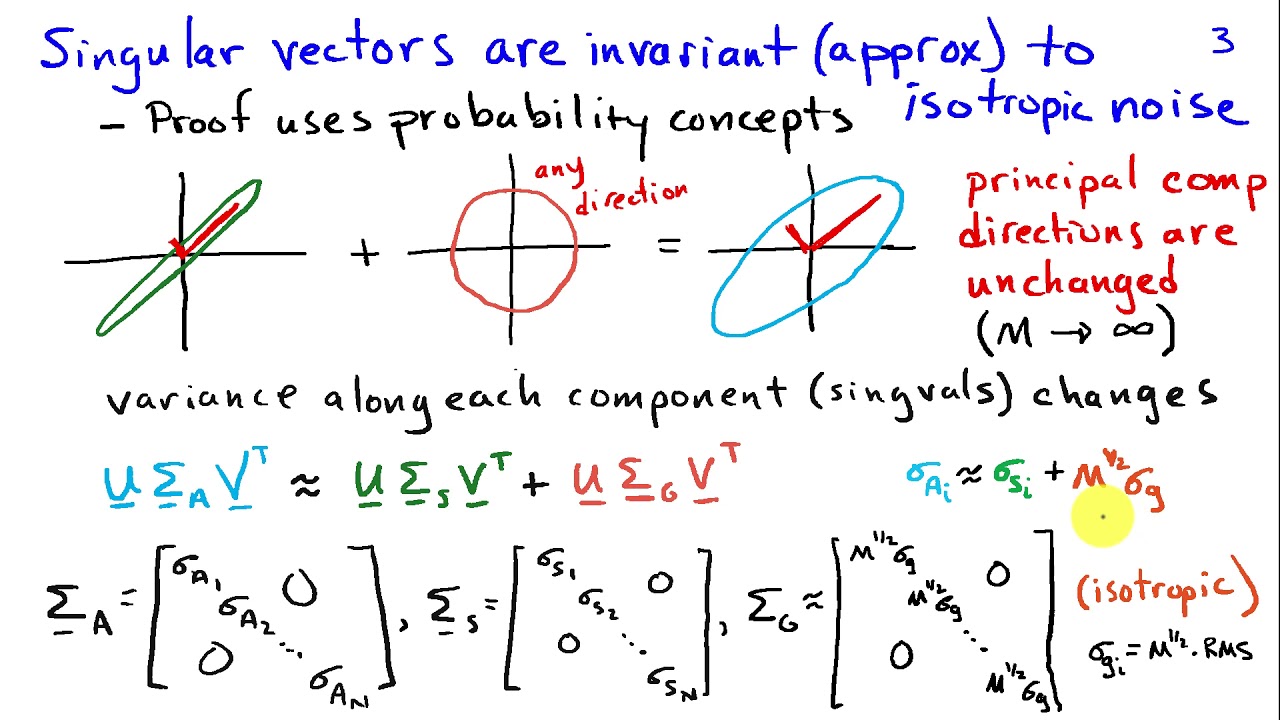 Singular vectors are invariant (approx) to isotropic noise
3
- Proof uses probability concepts
any direction
+
=
principal comp
directions are
unchanged
(M → ∞)
variance along each component (singvals) changes
U Σ_A V^T ≈ U Σ_S V^T + U Σ_G V^T
σ_Ai ≈ σ_Si + M^1/2 σ_g
Σ_A = [σ_A1 σ_A2 ⋱ σ_AN 0 0], Σ_S = [σ_S1 σ_S2 ⋱ σ_SN 0 0], Σ_G ≈ [M^1/2 σ_g M^1/2 σ_g ⋱ M^1/2 σ_g 0 0]
(isotropic)
σ_gi = M^1/2 · RMS